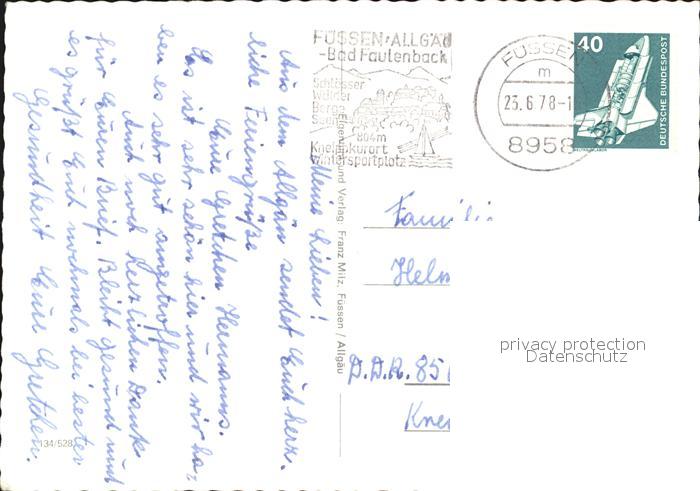 Meine Lieben!
Aus dem Allgäu sendet Euch herz-
liche Feriengrüße
Eure Gretchen Hermanns.
Es ist sehr schön hier und wir ha-
ben es sehr gut angetroffen.
Auch noch herzlichen Dank
für Euren Brief. Bleibt gesund und
es grüßt Euch nochmals bei bester
Gesundheit Eure Gretchen.
134/528
Eigentum und Verlag: Franz Milz, Füssen / Allgäu
FÜSSEN/ALLGÄU
-Bad Faulenbach
Schlösser
Wälder
Berge
Seen
804m
Kneippkurort
Wintersportplatz
FÜSSEN
m
23.6.78-1
8958
40
DEUTSCHE BUNDESPOST
WELTRAUMLABOR
Famili
Helm
D.D.R. 851
privacy protection
Datenschutz